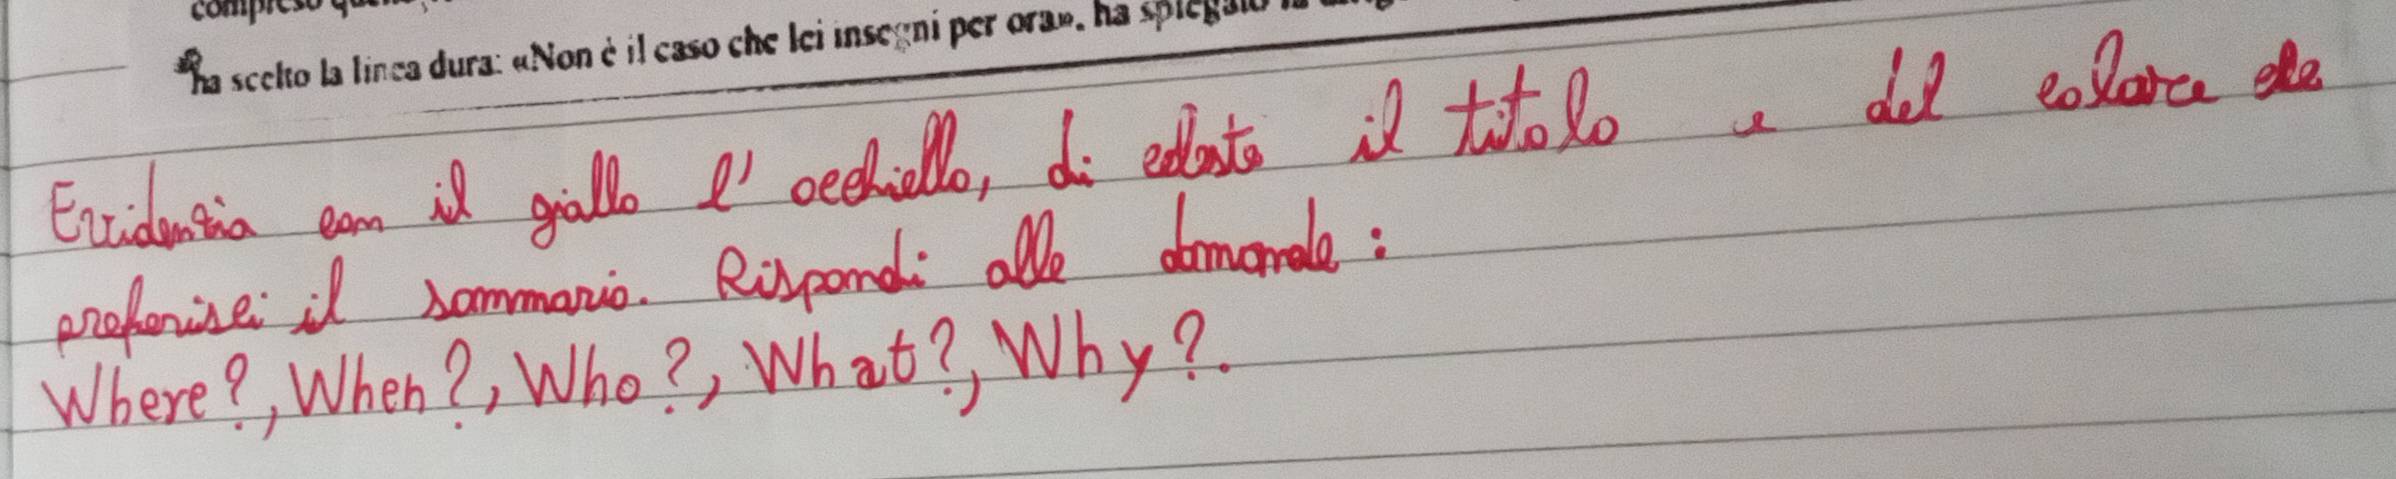 compreso
ha scelto la linea dura: «Non è il caso che lei insegni per ora». ha spiegato la
Evidenzia con il giallo l'occhiello, di celeste il titolo e del colore che
preferisci il sommario. Rispondi alle domande:
Where?, When?, Who?, What?, Why?.